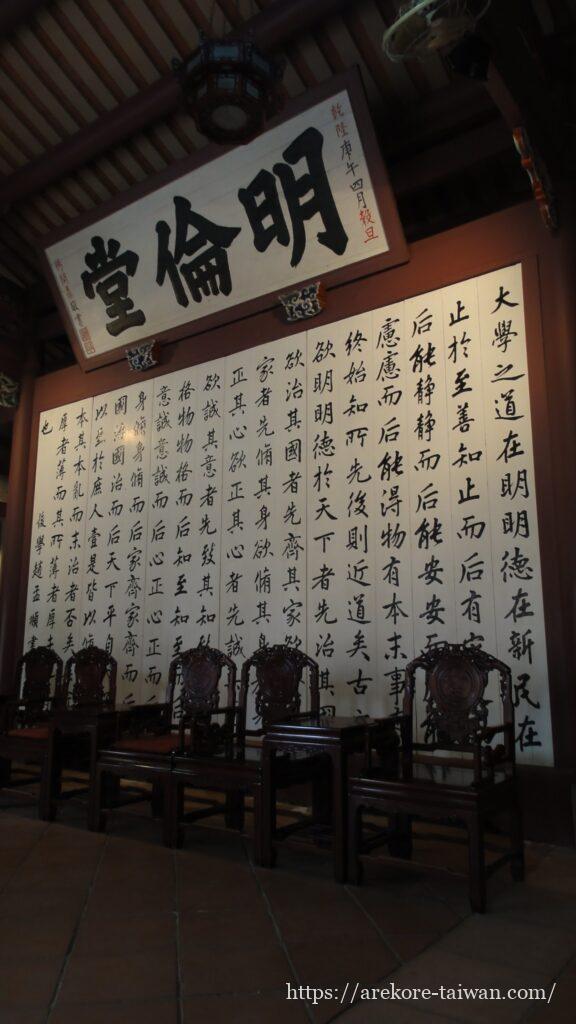 乾隆庚午四月穀旦
明倫堂
大學之道在明明德在新民在
止於至善知止而后有定
后能静静而后能安安而后能
慮慮而后能得物有本末事
終始知所先後則近道矣古之
欲明明德於天下者先治其國
欲治其國者先齊其家欲
家者先脩其身欲脩其身
正其心欲正其心者先誠
欲誠其意者先致其知
格物物格而后知至知至
意誠意誠而后心正心正而
身脩身脩而后家齊家齊而
國治國治而后天下平自
以至於庶人壹是皆以脩
本其本亂而末治者否矣
厚者薄而其所薄者厚未
也
後學趙孟頫書
https://arekore-taiwan.com/